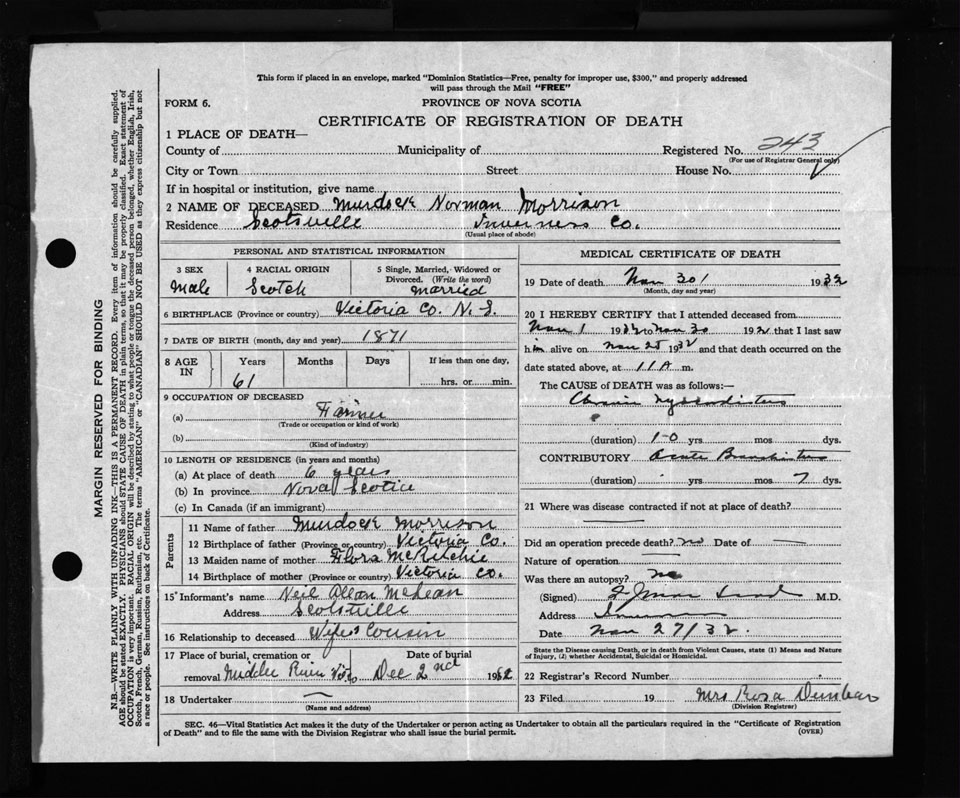 This form if placed in an envelope, marked "Dominion Statistics—Free, penalty for improper use, $300," and properly addressed
will pass through the Mail "FREE"
FORM 6.
PROVINCE OF NOVA SCOTIA
CERTIFICATE OF REGISTRATION OF DEATH
1 PLACE OF DEATH—
County of Municipality of Registered No. 243
(For use of Registrar General only)
City or Town Street House No.
If in hospital or institution, give name
2 NAME OF DECEASED Murdock Norman Morrison
Residence Scotsville Inverness Co.
(Usual place of abode)
PERSONAL AND STATISTICAL INFORMATION
3 SEX 4 RACIAL ORIGIN 5 Single, Married, Widowed or
Divorced. (Write the word)
Male Scotch married
6 BIRTHPLACE (Province or country) Victoria Co. N.S.
7 DATE OF BIRTH (month, day and year) 1871
8 AGE IN Years Months Days If less than one day,
61 hrs. or min.
9 OCCUPATION OF DECEASED
(a) Farmer
(Trade or occupation or kind of work)
(b)
(Kind of industry)
10 LENGTH OF RESIDENCE (in years and months)
(a) At place of death 6 years
(b) In province Nova Scotia
(c) In Canada (if an immigrant)
Parents
11 Name of father Murdock Morrison
12 Birthplace of father (Province or country) Victoria Co.
13 Maiden name of mother Flora McRitchie
14 Birthplace of mother (Province or country) Victoria Co.
15 Informant's name Neil Allan McLean
Address Scotsville
16 Relationship to deceased Wife's Cousin
17 Place of burial, cremation or Date of burial
removal Middle River Dec 2nd 1932
18 Undertaker —
(Name and address)
MEDICAL CERTIFICATE OF DEATH
19 Date of death Nov 30 1932
(Month, day and year)
20 I HEREBY CERTIFY that I attended deceased from
Nov 1 1932 to Nov 30 192 that I last saw
him alive on Nov 25 1932 and that death occurred on the
date stated above, at 11 A m.
The CAUSE of DEATH was as follows:—
Chronic Myocarditis
(duration) 10 yrs. mos. dys.
CONTRIBUTORY Acute Bronchitis
(duration) yrs. mos. 7 dys.
21 Where was disease contracted if not at place of death?
—
Did an operation precede death? no Date of —
Nature of operation —
Was there an autopsy? no
(Signed) M.D.
Address
Date Nov 27/32
State the Disease causing Death, or in death from Violent Causes, state (1) Means and Nature
of Injury, (2) whether Accidental, Suicidal or Homicidal.
22 Registrar's Record Number
23 Filed 19 Mrs Rosa Dunbar
(Division Registrar)
SEC. 46—Vital Statistics Act makes it the duty of the Undertaker or person acting as Undertaker to obtain all the particulars required in the "Certificate of Registration
of Death" and to file the same with the Division Registrar who shall issue the burial permit.
(OVER)
MARGIN RESERVED FOR BINDING
N.B.—WRITE PLAINLY WITH UNFADING INK—THIS IS A PERMANENT RECORD. Every item of information should be carefully supplied.
AGE should be stated EXACTLY. PHYSICIANS should STATE CAUSE OF DEATH in plain terms, so that it may be properly classified. Exact statement of
OCCUPATION is very important. RACIAL ORIGIN will be described by stating to what people or tongue the deceased person belonged, whether English, Irish,
Scotch, French, German, Russian, Ruthenian, etc. The terms "AMERICAN" or "CANADIAN" SHOULD NOT BE USED as they express citizenship but not
a race or people. See instructions on back of Certificate.